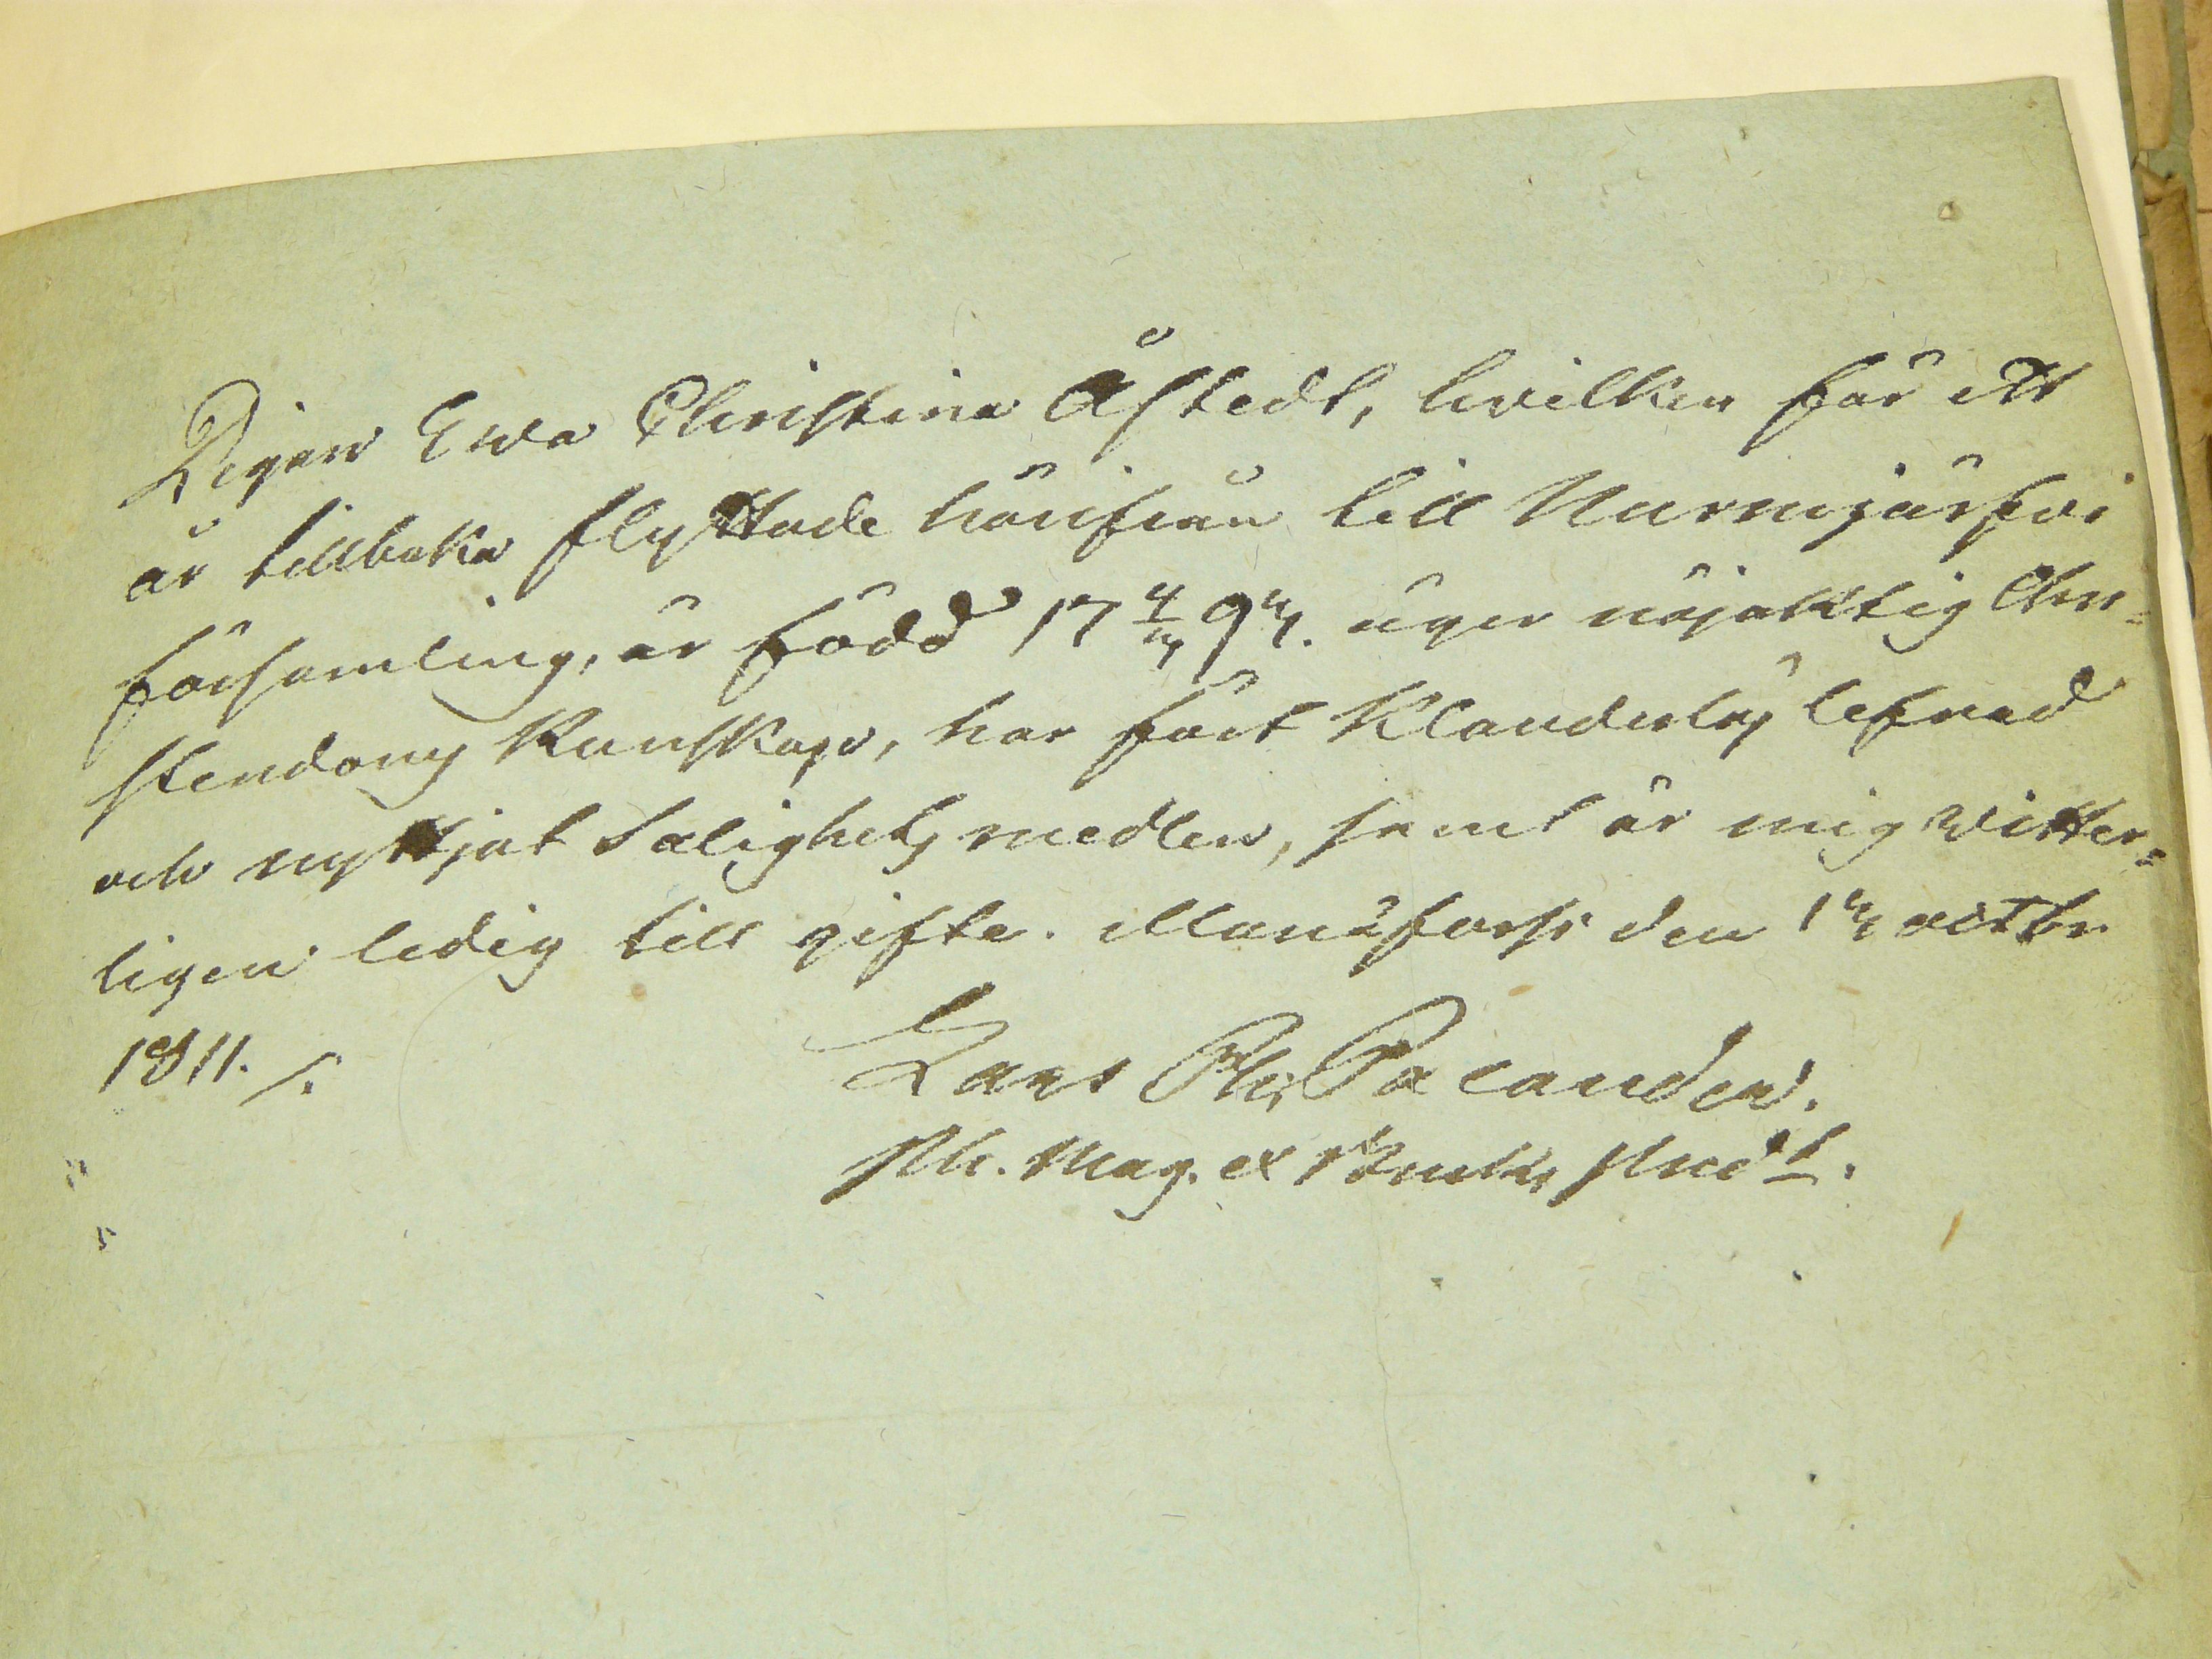 Pigan Ewa Christina Åstedt, hvilken för ett
år tillbaka flyttade härifrån till Nurmijärfvi
församling, är född 17 4/ 9 äger nöjaktig Chri=
stendoms kunskap, har fört Klanderlös lefnad
och nyttjat Salighets medlen, samt är mig witter=
ligen ledig till gifte. Månsfors den octbr
1811.
Lars Pacander.
Ph. Mag. et Bruks Pred.